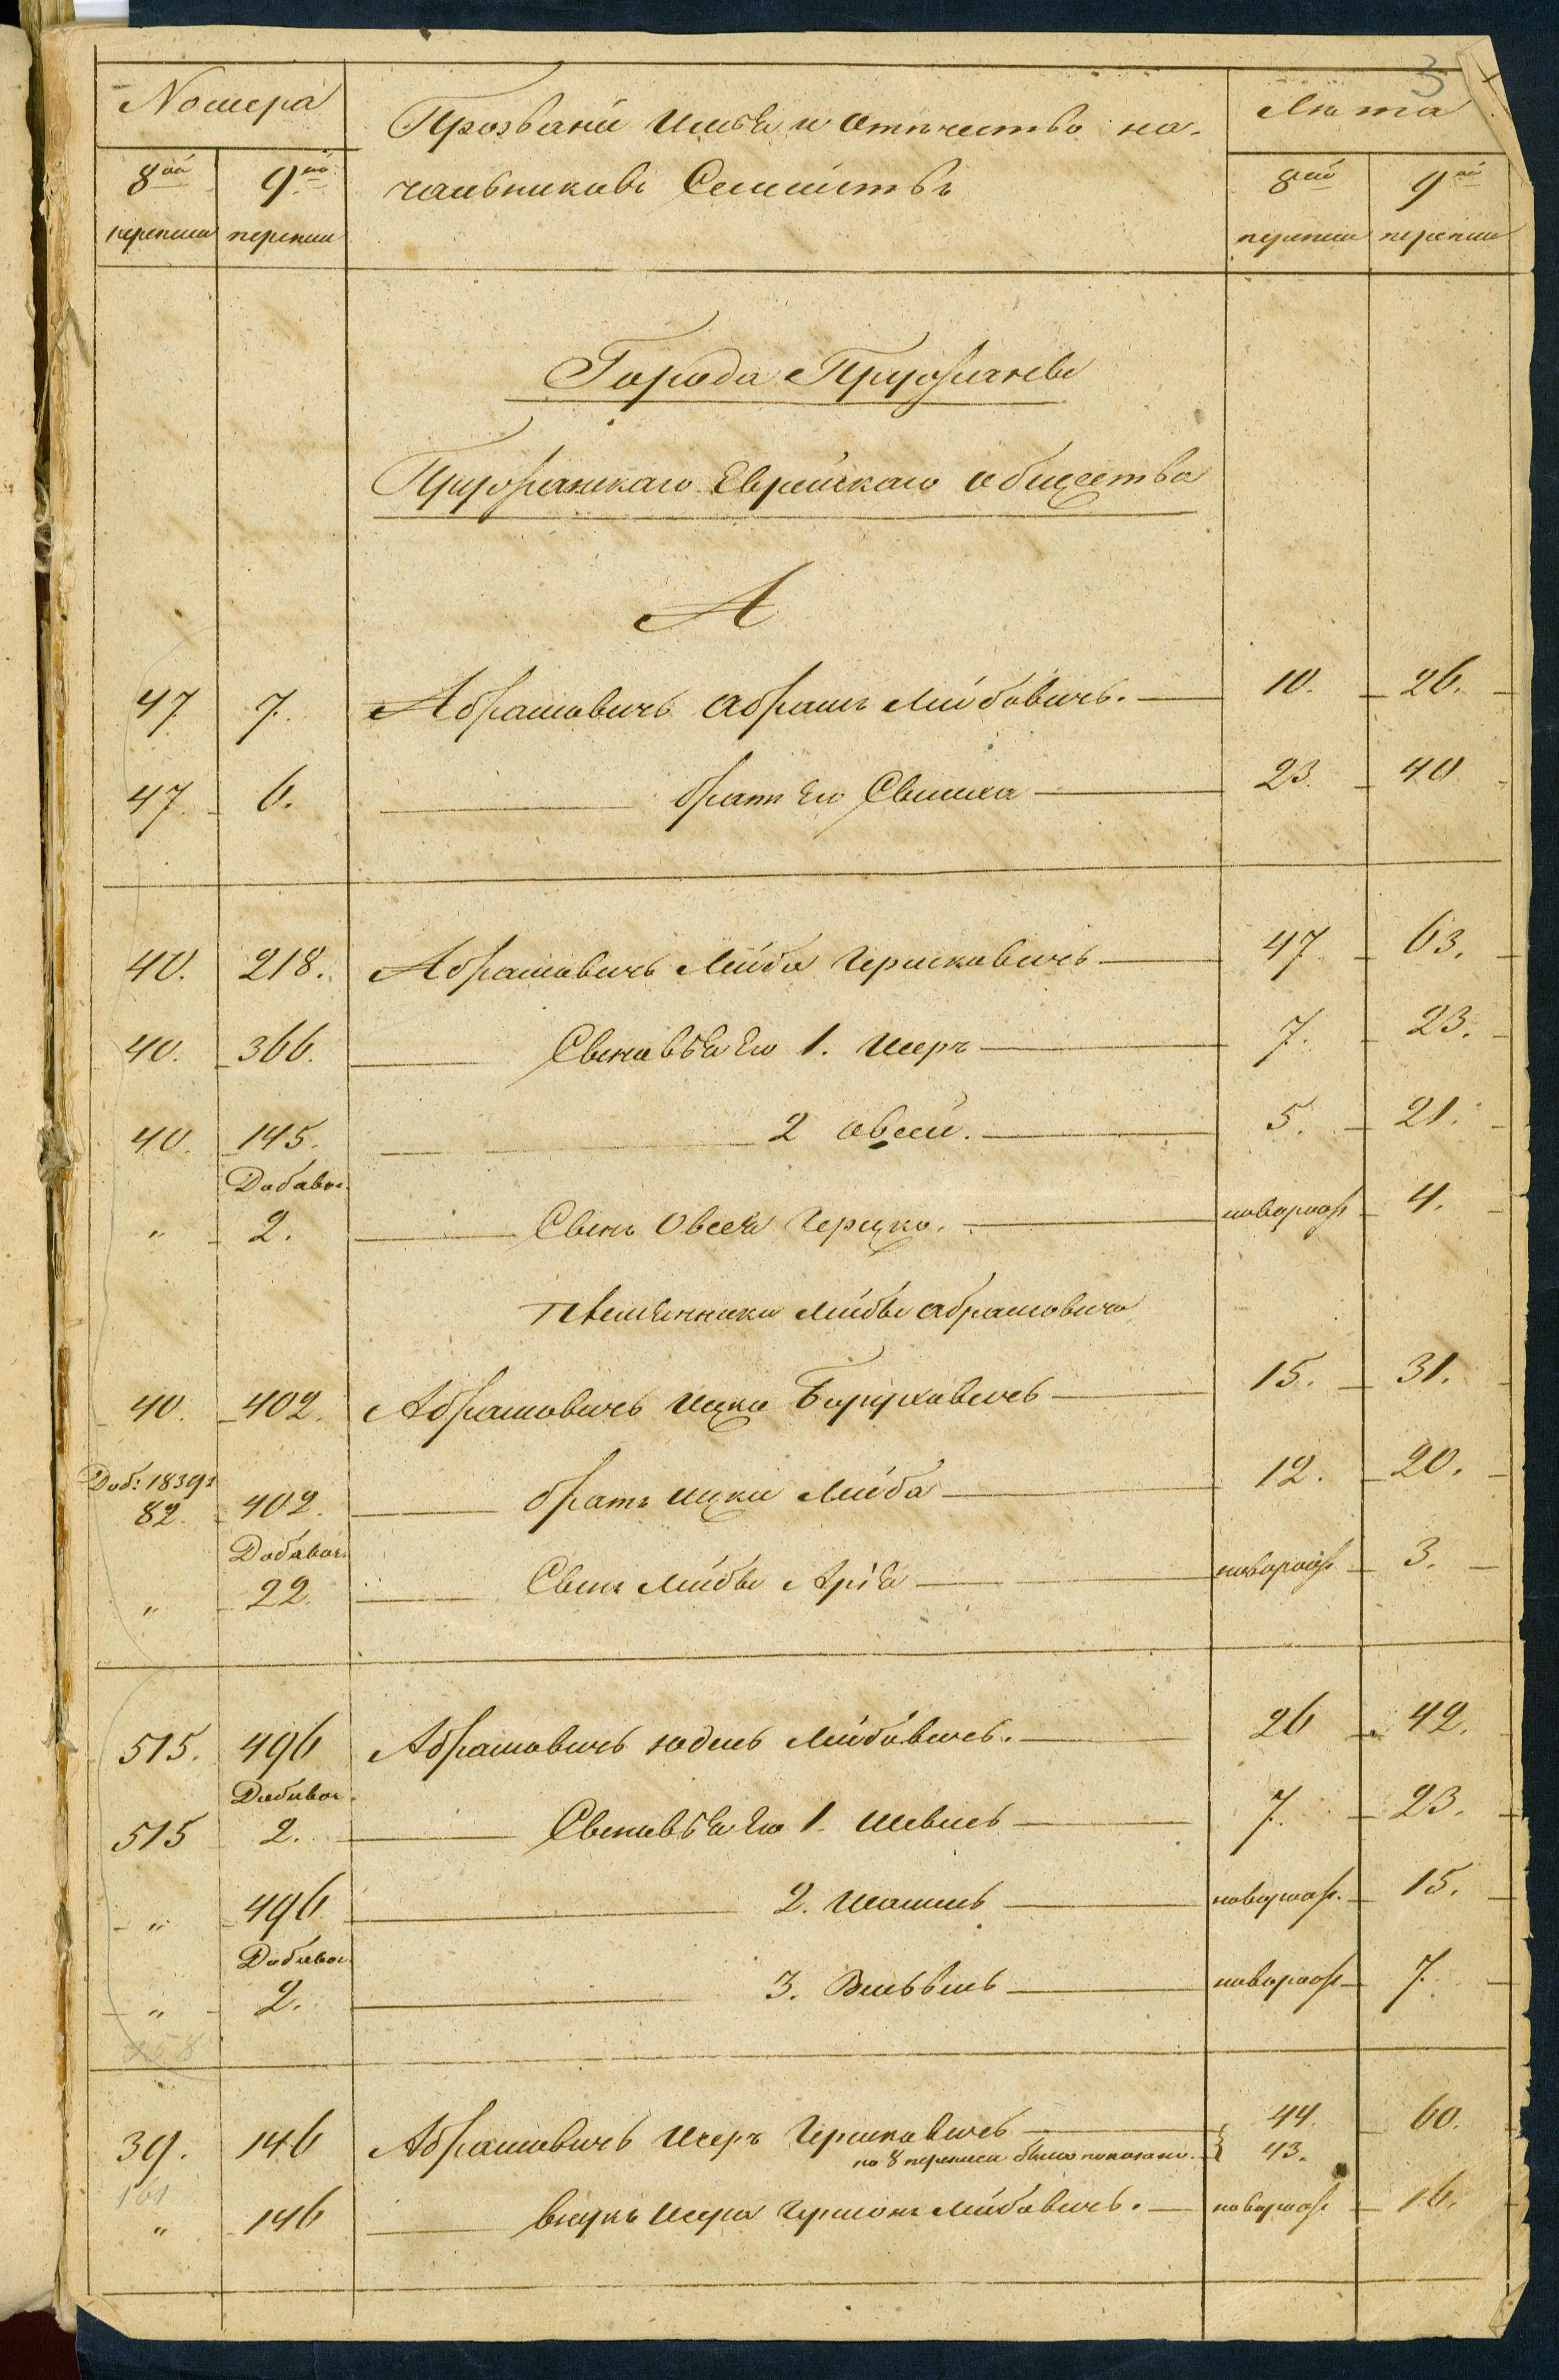 3
Номера
Прозвания Имя и Отечество на-
чальниковъ Семействъ
Лѣта
8ой 9ой
8ой 9ой
переписи переписи
переписи переписи
Города Пружанъ
Пружанскаго Еврейскаго общества
А
47 7. Абрамовичъ Абрамъ Лейбовичъ. 10. 26.
47 6. братъ его Симха 23. 40
40. 218. Абрамовичъ Лейба Гершковичъ 47 63.
40. 366. Сыновья его 1. Исеръ 7. 23.
40. 145. 2 Овсей. 5. 21.
Добавоч.
" 2. Сынъ Овсея Герцко. новорож 4.
племянники Лейбы Абрамовича
40. 402. Абрамовичъ Ицка Боруховичъ 15. 31.
Доб: 1839г
82. 402. братъ Ицки Лейба 12. 20.
Добавоч.
" 22. Сынъ Лейбы Арія новорож 3.
515. 496 Абрамовичъ Юдель Лейбовичъ. 26 42.
Добавоч.
515 2. Сыновья его 1. 7. 23.
" 496 2. новорож. 15.
Добавоч.
" 2. 3. новорож 7.
39. 146 Абрамовичъ Исеръ Гершковичъ 44. 60.
по 8 переписи было показано. 43.
161
" 146 внукъ Исера Гершонъ Лейбовичъ. новорож 16.